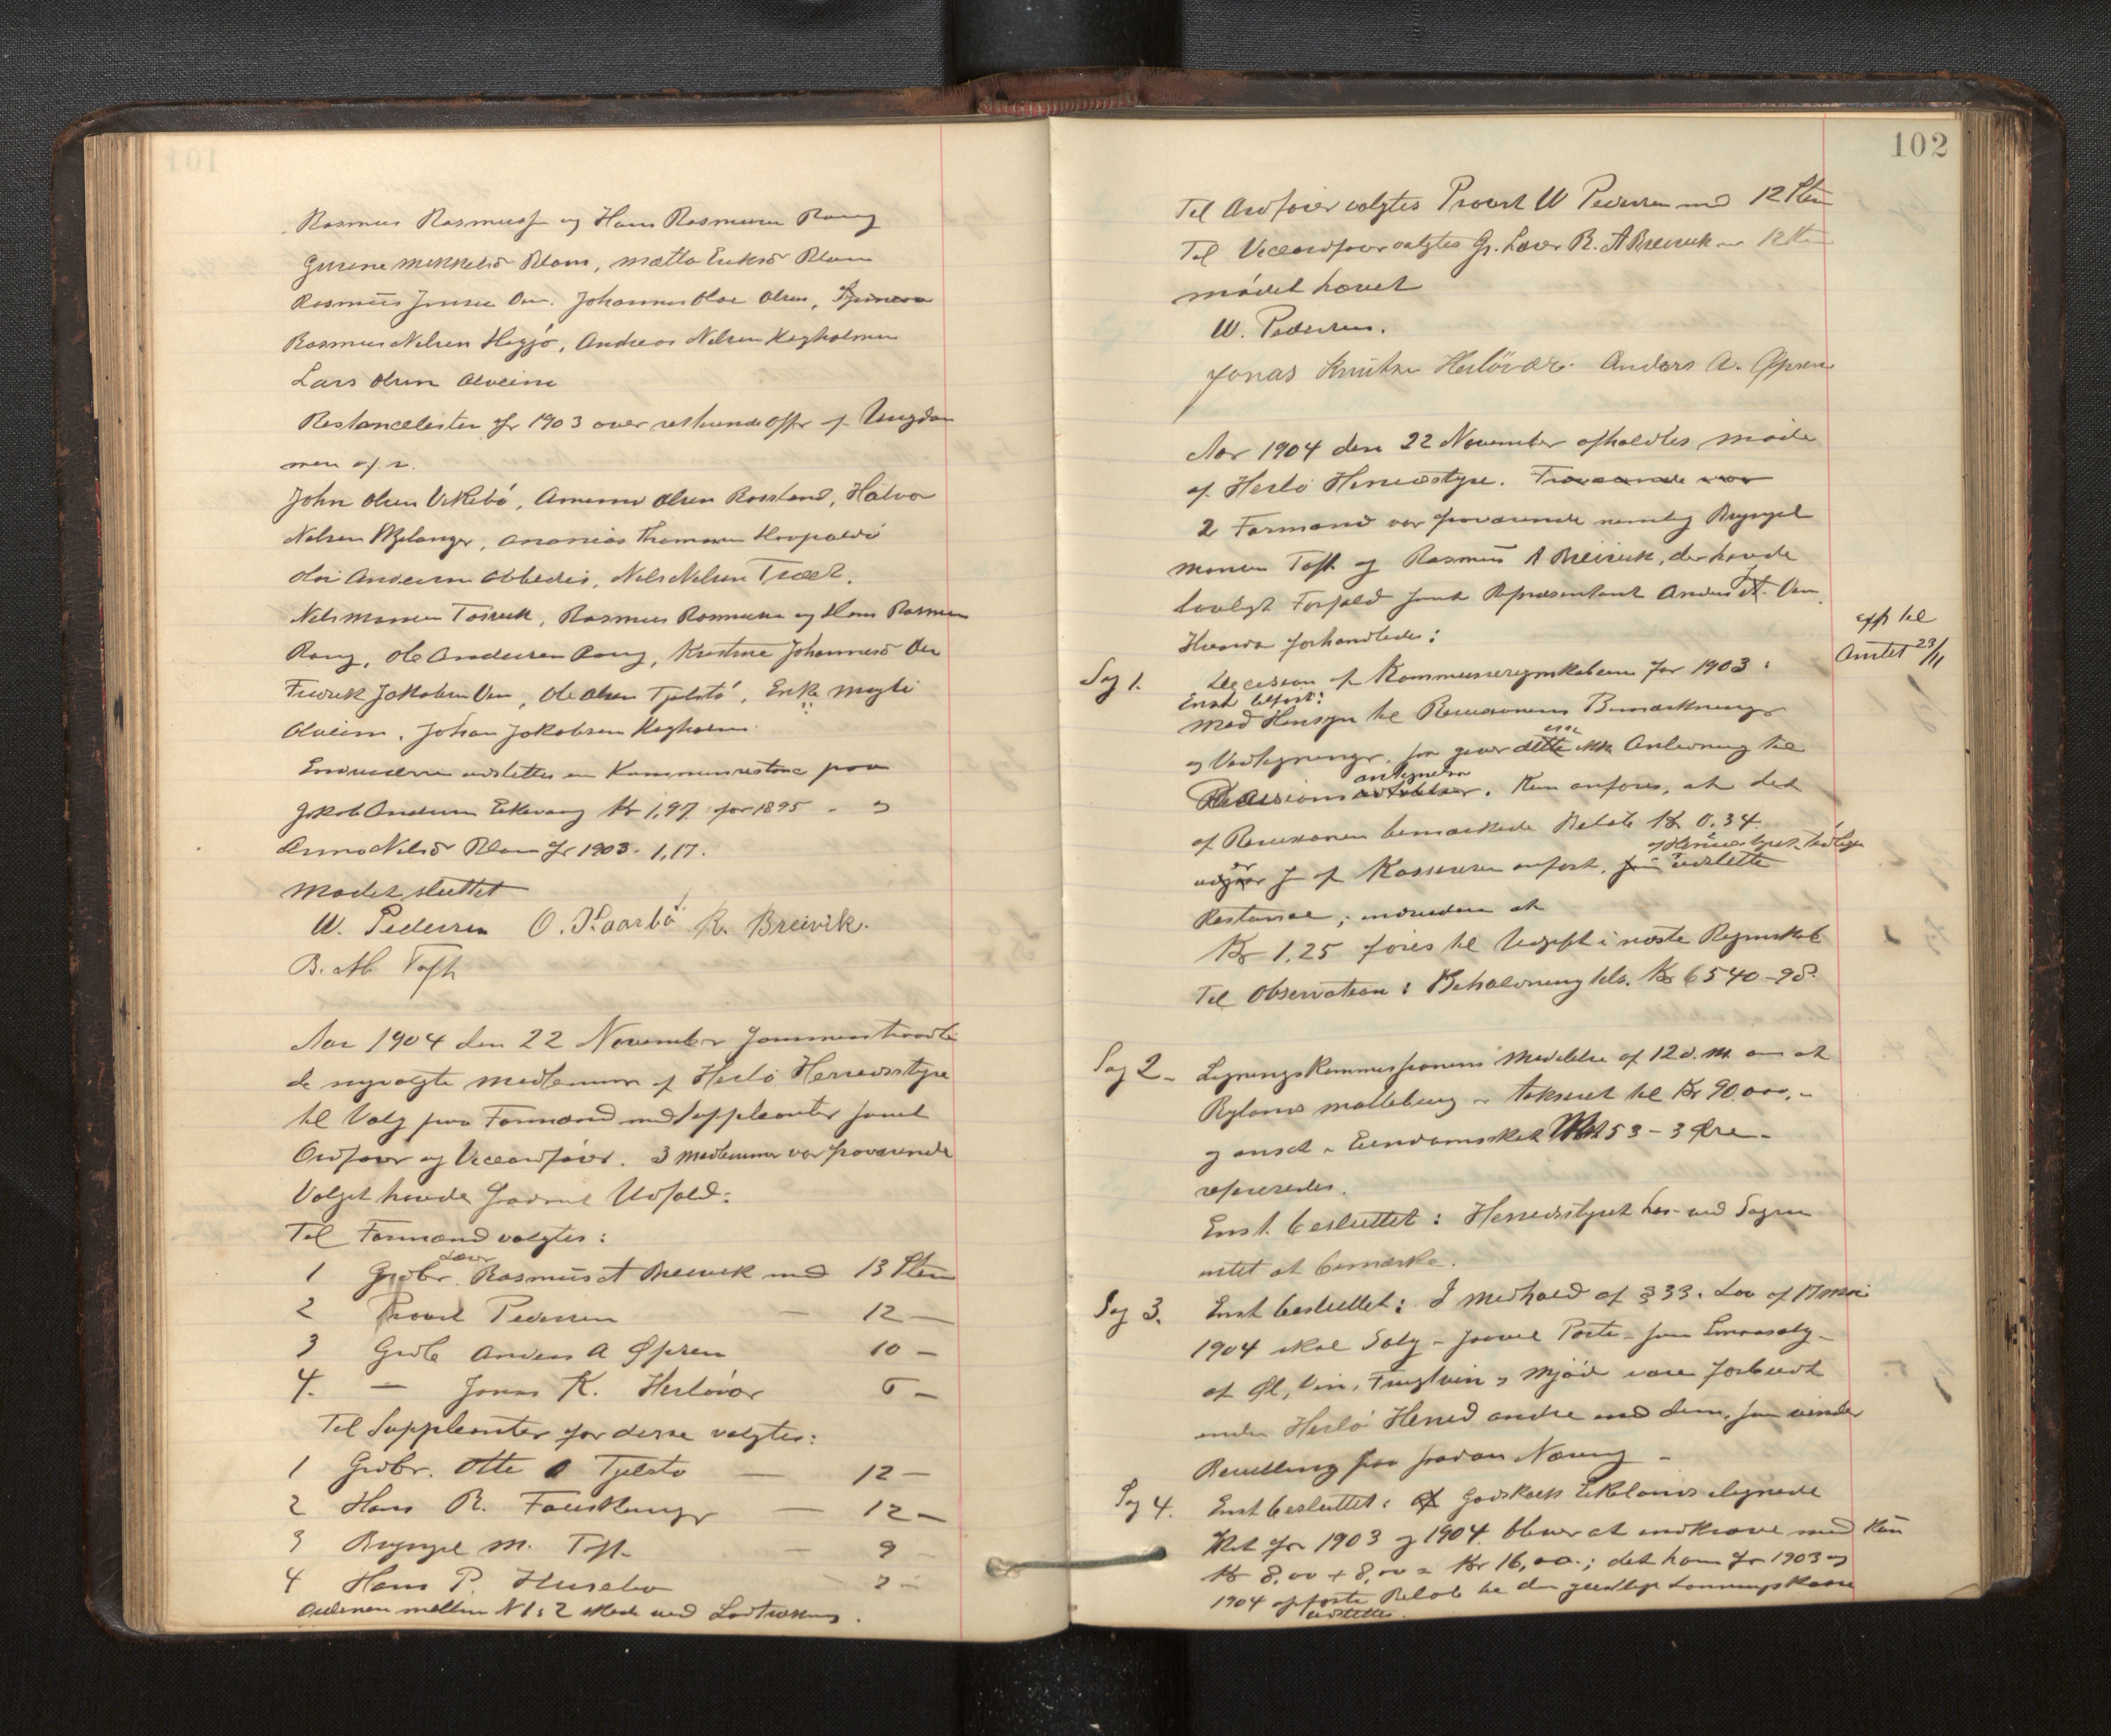 Rasmus Rasmussen og Hans Rasmussen Rong
Gurine Mikkelsd Blom, Matta Eriksd Blom
Rasmus Jensen Oen. Johannes Olai Olsen,
Rasmus Nelsen Hegjö, Andreas Nilsen Hegholmen
Lars Olsen Alveim
Restancelisten for 1903 over restende Offer af Ungdom
men o.f.v.
John Olsen Virkebö, Olsen Rossland, Halvor
Nelsen Mjelanger, Ananias Thomassen
Ole Andersen, Nels Nelsen Træet.
Nels Monsen Toswik, Rasmus Rasmussen og Hans Rasmussen
Rong, Ole Andersen Rong, Kristine Johannesd Oen
Fredrik Jakobsen Oen, Ole Olsen Tjelstö, Enke Magli
Alveim, Johan Jakobsen Hegholm
Endvidere udslettes en Kommunerestance paa
Jakob Andersen Eikevang Kr 1,97 for 1895 - og
Anna Nilsd Blom for 1903 - 1,17.
Mödet sluttet
W. Pedersen O. Kaarbö R. Breivik.
B. M Toft
Aar 1904 den 22 November sammentraadte
de nyvalgte Medlemmer af Herlö Herredsstyre
til Valg paa Formænd med Suppleanter samt
Ordförer og Viceordförer. 3 Medlemmer var fraværende
Valget havde saadant Udfald:
Til Formænd valgtes:
Lærer
1 Grdbr. Rasmus A Breivik med 13 Stem
2 Provst Pedersen — 12 —
3 Grdb Anders A Øpsen 10 —
4. — Jonas K. Herlövær 6 —
Til Suppleanter for disse valgtes:
1 Grdbr. Otte O Tjelstö — 12 —
2 Hans R. Fauskanger — 12 —
3 Brynjel M. Toft — 9 —
4 Hans P. Husebö — 7 —
Ordenen mellem N 1 & 2 skede ved Lodtrækning.
102
Til Ordförer valgtes Provst W Pedersen med 12 Stem
Til Viceordförer valgtes Gr. Lærer R. A Breivik m 12 Stem
Mödet hævet
W. Pedersen.
Jonas Knutsen Herlövær. Anders A. Öpsen
Aar 1904 den 22 November afholdtes Möde
af Herlö Herredsstyre. Fraværende var
2 Formænd var fraværende nemlig Brynjel
Monsen Toft og Rasmus A Breivik, der havde
lovligt Forfald samt Repræsentant Anders A. Oen.
Herda forhandledes:
exp til
Amtet 23/11
Sag 1. Decision af Kommuneregnskabern for 1903:
Enst besluttet:
Med Hensyn til Revisionens Bemærkninger
og Vedtegninger, saa giver disse dette ikke Anledning til
antegnelser
Decisions. Kun anföres, at det
af Revisionen bemærkede Belöb Kr 0.34.
er som af Kassereren anfört, udslettet
Restance; endvidere at
Kr 1,25 föres til Udgift i næste Regnskab
Til Observation: Beholdning kls. Kr 6540-98.
Sag 2 - Ligningskommissionens Meddelse af 12 d.M. om at
Rylands Møllebrug er takseret til Kr 90.000,-
og ansat i Eiendomsskat 53 - 3 Øre -
refereredes.
Enst. besluttet: Herredsstyret har ved Sagen
intet at bemærke.
Sag 3. Enst besluttet: I Medhold af § 33. Lov af 17 Mai
1904 skal Salg - saavel Parti - som Smaasalg -
af Øl, Vin, Frugtvin & Mjød være forbudt
inden Herlö Herred andre end dem, som vinder
Bevilling paa saadan Næring -
Sag 4. Enst besluttet: Af Godskalk Eikelands ilignede
Skat for 1903 og 1904 bliver at indkræve med Kun
Kr 8,00 + 8,00 = Kr 16,00.; det ham for 1903 og
1904 opförte Belöb til den geistlige Lønningskasse
udslettes.